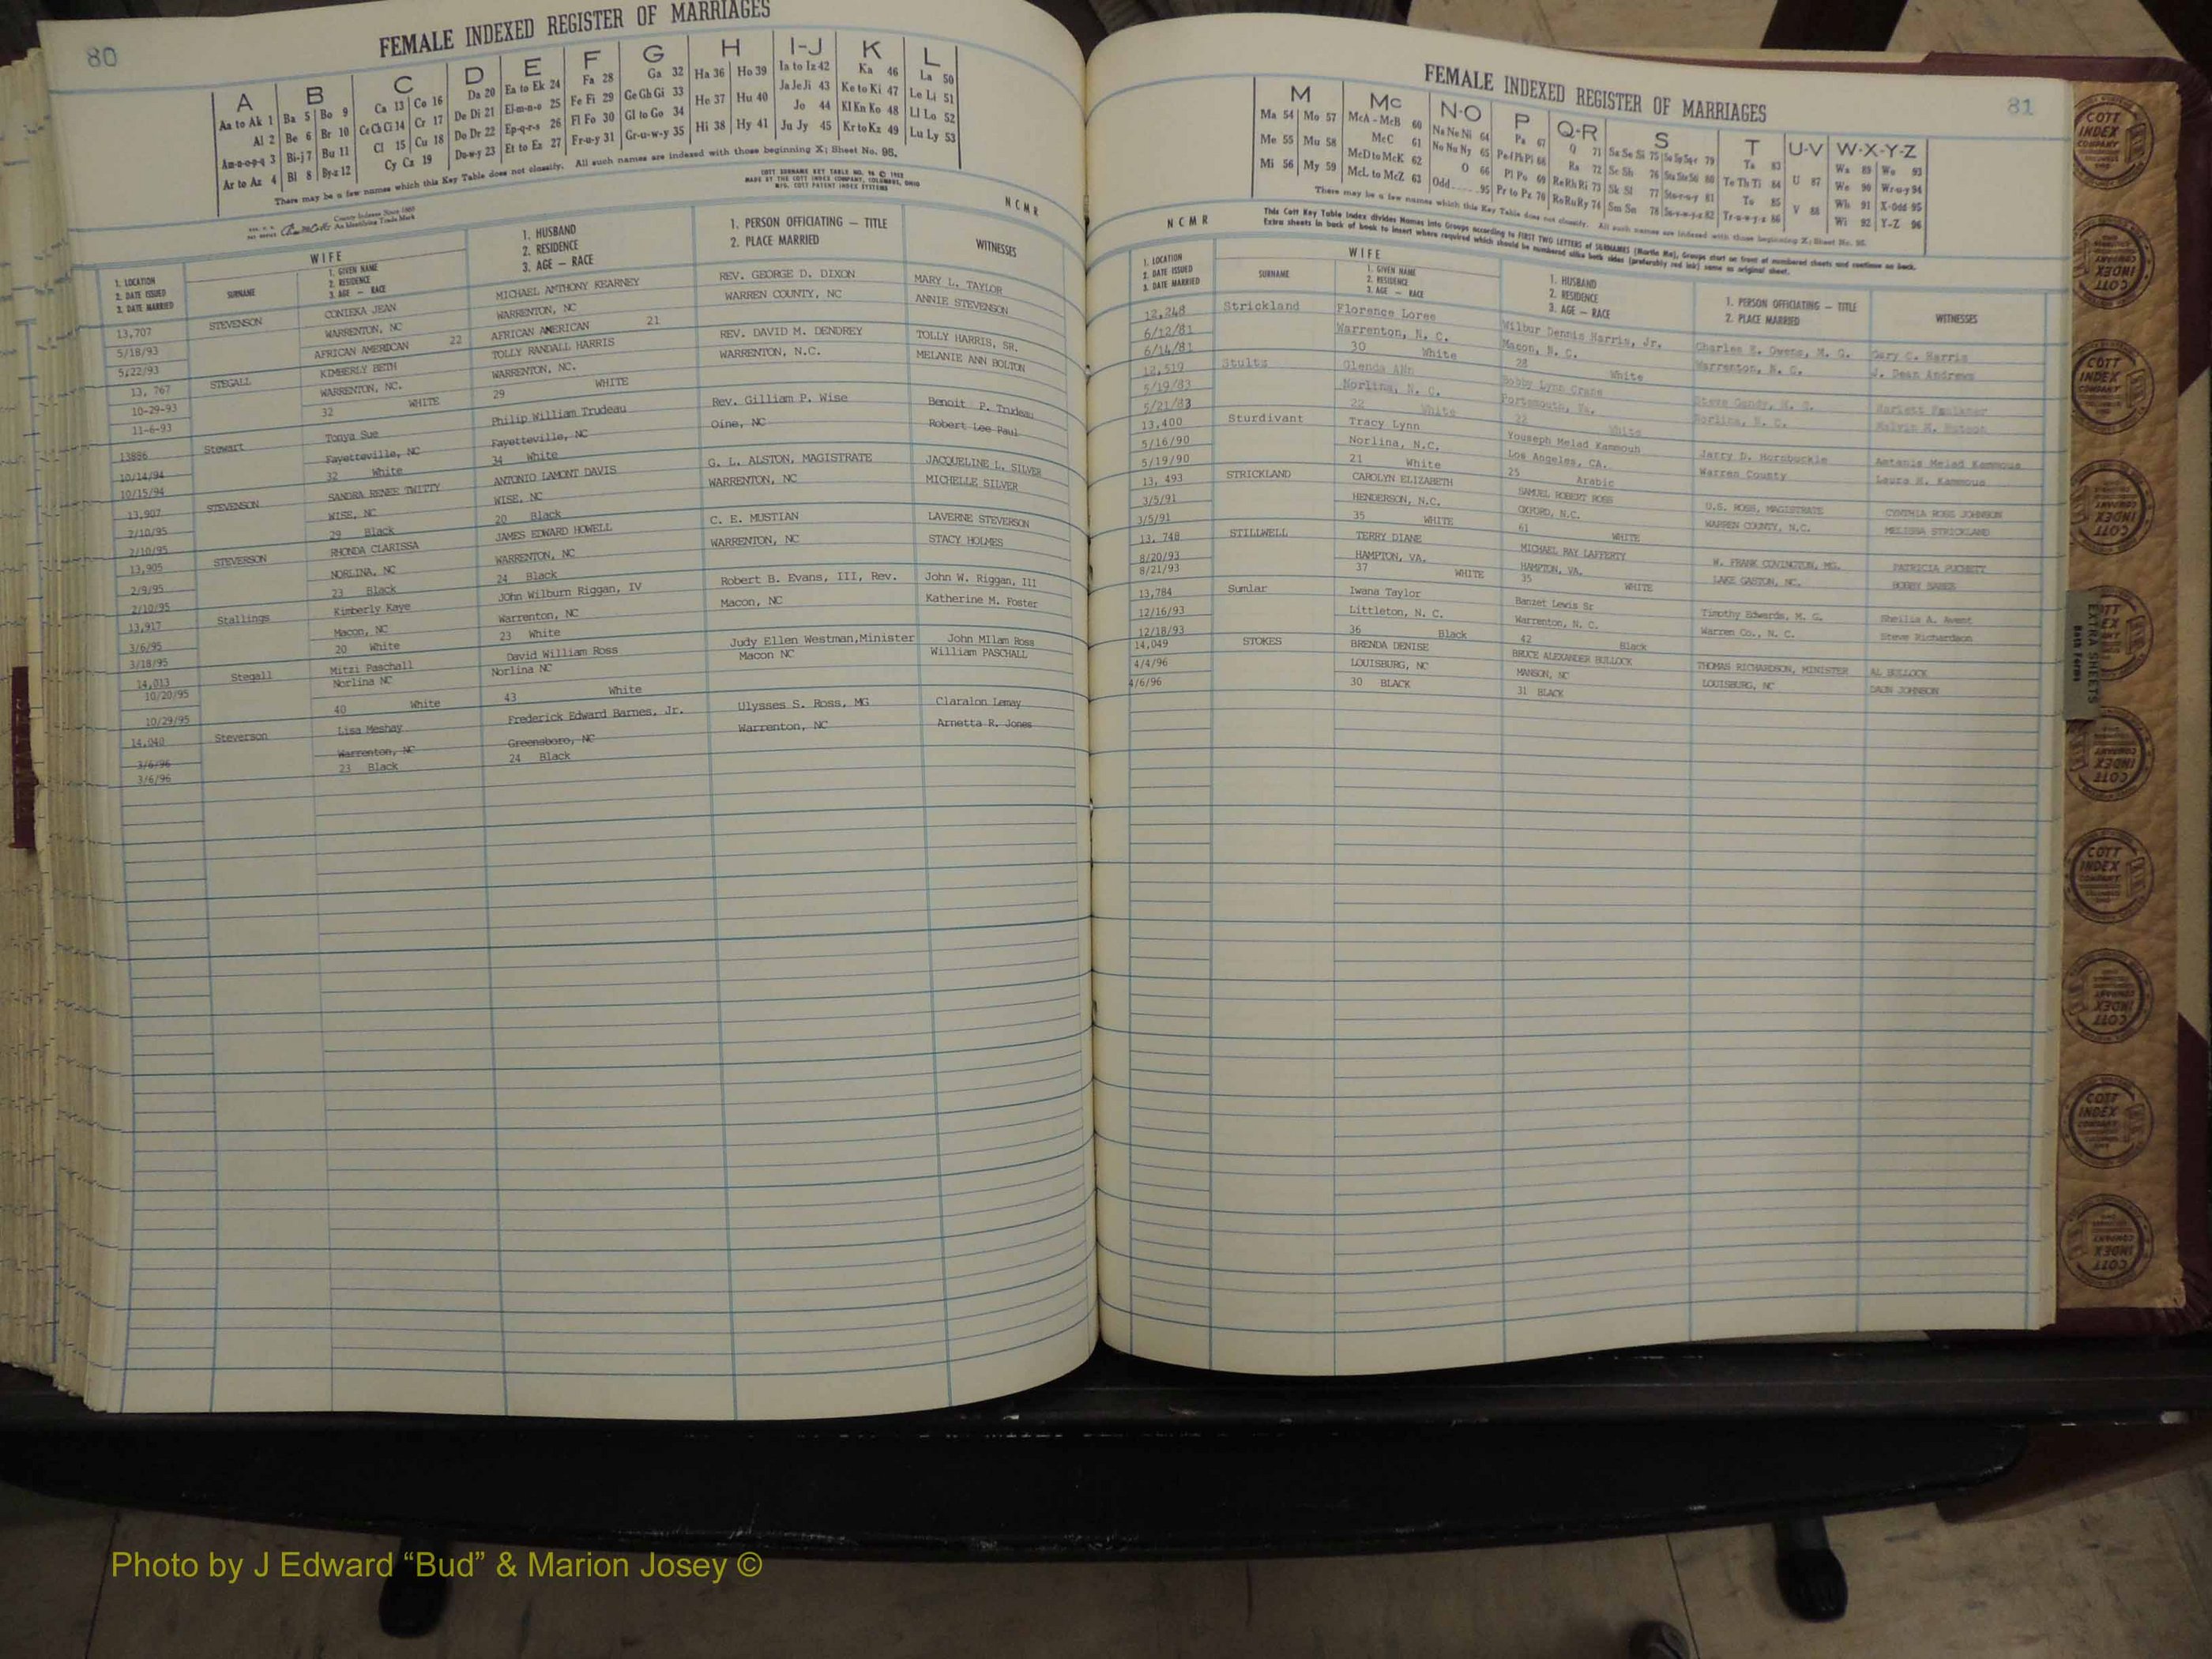 80
FEMALE INDEXED REGISTER OF MARRIAGES
A B C D E F G H I-J K L
Aa to Ak 1 Ba 5 Bo 9 Ca 13 Co 16 Da 20 Ea to Ek 24 Fa 28 Ga 32 Ha 36 Ho 39 Ia to Iz 42 Ka 46 La 50
Al 2 Be 6 Br 10 Ce Ch Ci 14 Cr 17 De Di 21 El-m-n-o 25 Fe Fi 29 Ge Gh Gi 33 He 37 Hu 40 Ja Je Ji 43 Ke to Ki 47 Le Li 51
Am-n-o-p-q 3 Bi-j 7 Bu 11 Cl 15 Cu 18 Do Dr 22 Ep-q-r-s 26 Fl Fo 30 Gl to Go 34 Hi 38 Hy 41 Jo 44 Kl Kn Ko 48 Ll Lo 52
Ar to Az 4 Bl 8 By-z 12 Cy Cz 19 Du-w-y 23 Et to Ez 27 Fr-u-y 31 Gr-u-w-y 35 Ju Jy 45 Kr to Kz 49 Lu Ly 53
There may be a few names which this Key Table does not classify. All such names are indexed with those beginning X; Sheet No. 95.
COTT SURNAME KEY TABLE NO. 96 © 1962
MADE BY THE COTT INDEX COMPANY, COLUMBUS, OHIO
MFG. COTT PATENT INDEX SYSTEMS
County Indexes Since 1888
An Identifying Trade Mark
N C M R
1. LOCATION
2. DATE ISSUED
3. DATE MARRIED
WIFE
SURNAME
1. GIVEN NAME
2. RESIDENCE
3. AGE — RACE
1. HUSBAND
2. RESIDENCE
3. AGE — RACE
1. PERSON OFFICIATING — TITLE
2. PLACE MARRIED
WITNESSES
13,707 STEVENSON CONIEKA JEAN MICHAEL ANTHONY KEARNEY REV. GEORGE D. DIXON MARY L. TAYLOR
5/18/93 WARRENTON, NC WARRENTON, NC WARREN COUNTY, NC ANNIE STEVENSON
5/22/93 AFRICAN AMERICAN 22 AFRICAN AMERICAN 21
13, 767 STEGALL KIMBERLY BETH TOLLY RANDALL HARRIS REV. DAVID M. DENDREY TOLLY HARRIS, SR.
10-29-93 WARRENTON, NC. WARRENTON, NC. WARRENTON, N.C. MELANIE ANN BOLTON
11-6-93 32 WHITE 29 WHITE
13886 Stewart Tonya Sue Philip William Trudeau Rev. Gilliam P. Wise Benoit P. Trudeau
10/14/94 Fayetteville, NC Fayetteville, NC Oine, NC Robert Lee Paul
10/15/94 32 White 34 White
13,907 STEVENSON SANDRA RENEE TWITTY ANTONIO LAMONT DAVIS G. L. ALSTON, MAGISTRATE JACQUELINE L. SILVER
2/10/95 WISE, NC WISE, NC WARRENTON, NC MICHELLE SILVER
2/10/95 29 Black 20 Black
13,905 STEVERSON RHONDA CLARISSA JAMES EDWARD HOWELL C. E. MUSTIAN LAVERNE STEVERSON
2/9/95 NORLINA, NC WARRENTON, NC WARRENTON, NC STACY HOLMES
2/10/95 23 Black 24 Black
13,917 Stallings Kimberly Kaye John Wilburn Riggan, IV Robert B. Evans, III, Rev. John W. Riggan, III
3/6/95 Macon, NC Warrenton, NC Macon, NC Katherine M. Foster
3/18/95 20 White 23 White
14,013 Stegall Mitzi Paschall David William Ross Judy Ellen Westman,Minister John MIlam Ross
10/20/95 Norlina NC Norlina NC Macon NC William PASCHALL
10/29/95 40 White 43 White
14,040 Steverson Lisa Meshay Frederick Edward Barnes, Jr. Ulysses S. Ross, MG Claralon Lemay
3/6/96 Warrenton, NC Greensboro, NC Warrenton, NC Arnetta R. Jones
3/6/96 23 Black 24 Black
FEMALE INDEXED REGISTER OF MARRIAGES
81
M Mc N-O P Q-R S T U-V W-X-Y-Z
Ma 54 Mo 57 McA - McB 60 Na Ne Ni 64 Pa 67 Q 71 Sa Se Si 75 79 Ta 83 Wa 89 Wo 93
Me 55 Mu 58 McC 61 No Nu Ny 65 Pe-f Ph Pi 68 Ra 72 Sc Sh 76 Sta Ste Sti 80 Te Th Ti 84 U 87 We 90 Wr-u-y 94
Mi 56 My 59 McD to McK 62 O 66 Pl Po 69 Re Rh Ri 73 Sk Sl 77 Sto-r-u-y 81 To 85 V 88 Wh 91 X-Odd 95
McL to McZ 63 Odd 95 Pr to Pz 70 Ro Ru Ry 74 Sm Sn 78 Su-v-w-y-z 82 Tr-u-w-y-z 86 Wi 92 Y-Z 96
There may be a few names which this Key Table does not classify. All such names are indexed with those beginning X; Sheet No. 95.
N C M R
This Cott Key Table Index divides Names into Groups according to FIRST TWO LETTERS of SURNAMES (Martin Ma), Groups start on front of numbered sheets and continue on back.
Extra sheets in back of book to insert where required which should be numbered alike both sides (preferably red ink) same as original sheet.
1. LOCATION
2. DATE ISSUED
3. DATE MARRIED
WIFE
SURNAME
1. GIVEN NAME
2. RESIDENCE
3. AGE — RACE
1. HUSBAND
2. RESIDENCE
3. AGE — RACE
1. PERSON OFFICIATING — TITLE
2. PLACE MARRIED
WITNESSES
12,248 Strickland Florence Loree Wilbur Dennis Harris, Jr. Charles E. Owens, M. G. Gary C. Harris
6/12/81 Warrenton, N. C. Macon, N. C. Warrenton, N. C. J. Dean Andrews
6/14/81 30 White 28 White
12,519 Stultz Glenda ANn Bobby Lynn Crane Steve Gandy, M. G. Harlett Faulkner
5/19/83 Norlina, N. C. Portsmouth, Va. Norlina, N. C. Melvin H. Hutson
5/21/83 22 White 22 White
13,400 Sturdivant Tracy Lynn Youseph Melad Kammouh Jarry D. Hornbuckle Antanis Melad Kammoua
5/16/90 Norlina, N.C. Los Angeles, CA. Warren County Laura H. Kammoua
5/19/90 21 White 25 Arabic
13, 493 STRICKLAND CAROLYN ELIZABETH SAMUEL ROBERT ROSS U.S. ROSS, MAGISTRATE CYNTHIA ROSS JOHNSON
3/5/91 HENDERSON, N.C. OXFORD, N.C. WARREN COUNTY, N.C. MELISSA STRICKLAND
3/5/91 35 WHITE 61 WHITE
13, 748 STILLWELL TERRY DIANE MICHAEL RAY LAFFERTY W. FRANK COVINGTON, MG. PATRICIA PUCKETT
8/20/93 HAMPTON, VA. HAMPTON, VA. LAKE GASTON, NC. BOBBY BABER
8/21/93 37 WHITE 35 WHITE
13,784 Sumlar Iwana Taylor Banzet Lewis Sr Timothy Edwards, M. G. Sheilia A. Avent
12/16/93 Littleton, N. C. Warrenton, N. C. Warren Co., N. C. Steve Richardson
12/18/93 36 Black 42 Black
14,049 STOKES BRENDA DENISE BRUCE ALEXANDER BULLOCK THOMAS RICHARDSON, MINISTER AL BULLOCK
4/4/96 LOUISBURG, NC MANSON, NC LOUISBURG, NC DAUN JOHNSON
4/6/96 30 BLACK 31 BLACK
EXTRA SHEETS
COTT INDEX COMPANY
Photo by J Edward “Bud” & Marion Josey ©